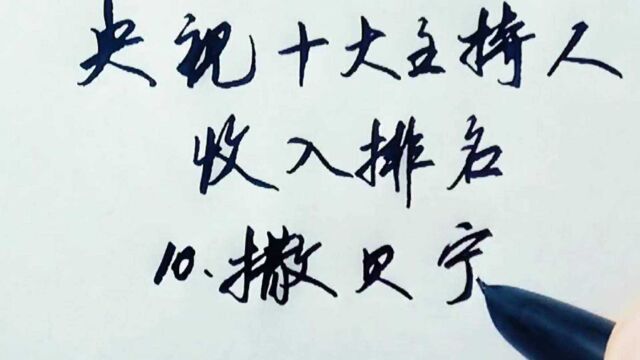 央视十大主持人
收入排名
10.撒贝宁